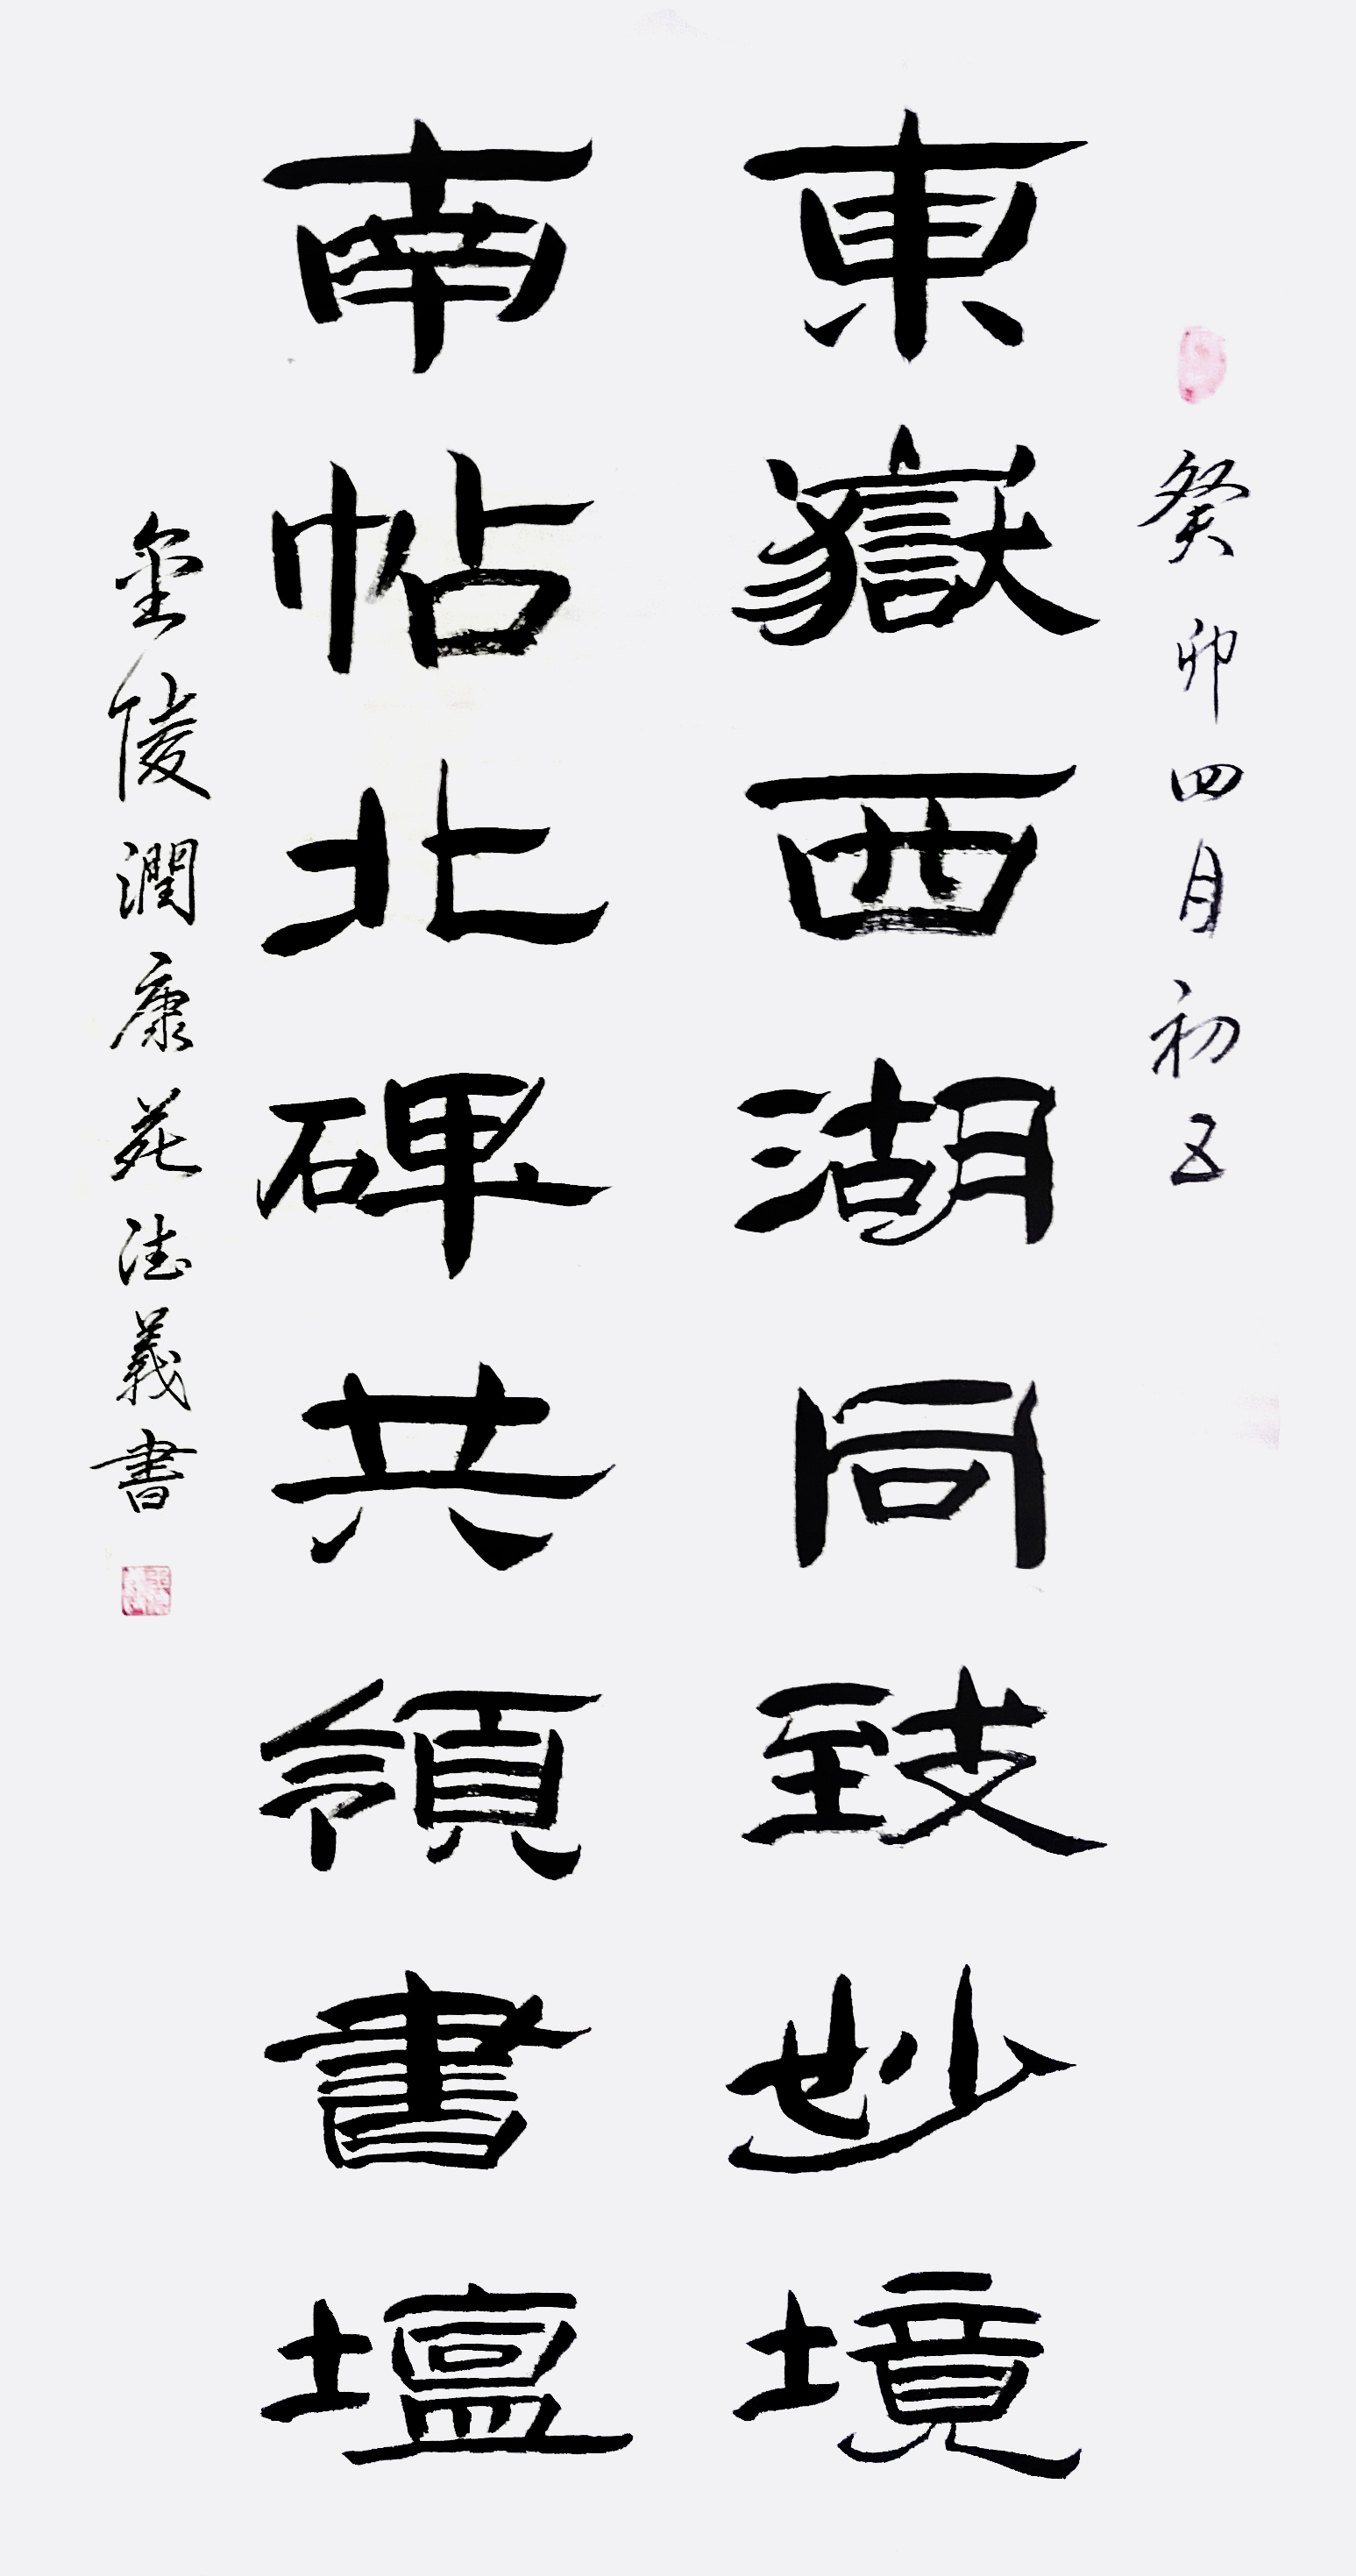 癸卯四月初五
東嶽西湖同致妙境
南帖北碑共領書壇
金陵潤康苑德義書